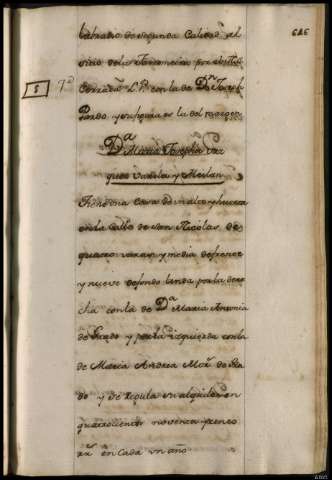 626
labradio de segunda Calidad, el
sitio de la
Cerrada L.P. con la de Dn Joseph
Pardo, y su figura es la del margen
Da
Maria Josepha Vaz
quez Varela y Merlan
Tiene una Casa de un alto y huerta
en la Calle de San Nicolas, de
quatro varas y media de frente
y nueve de fondo linda por la dere
cha con la de Da Maria Antonia
de Prado y por la izquierda con la
de Maria Andrea de Pra
do y se regula un alquiler en
quatrocientos noventa y cinco
rs. en cada un año